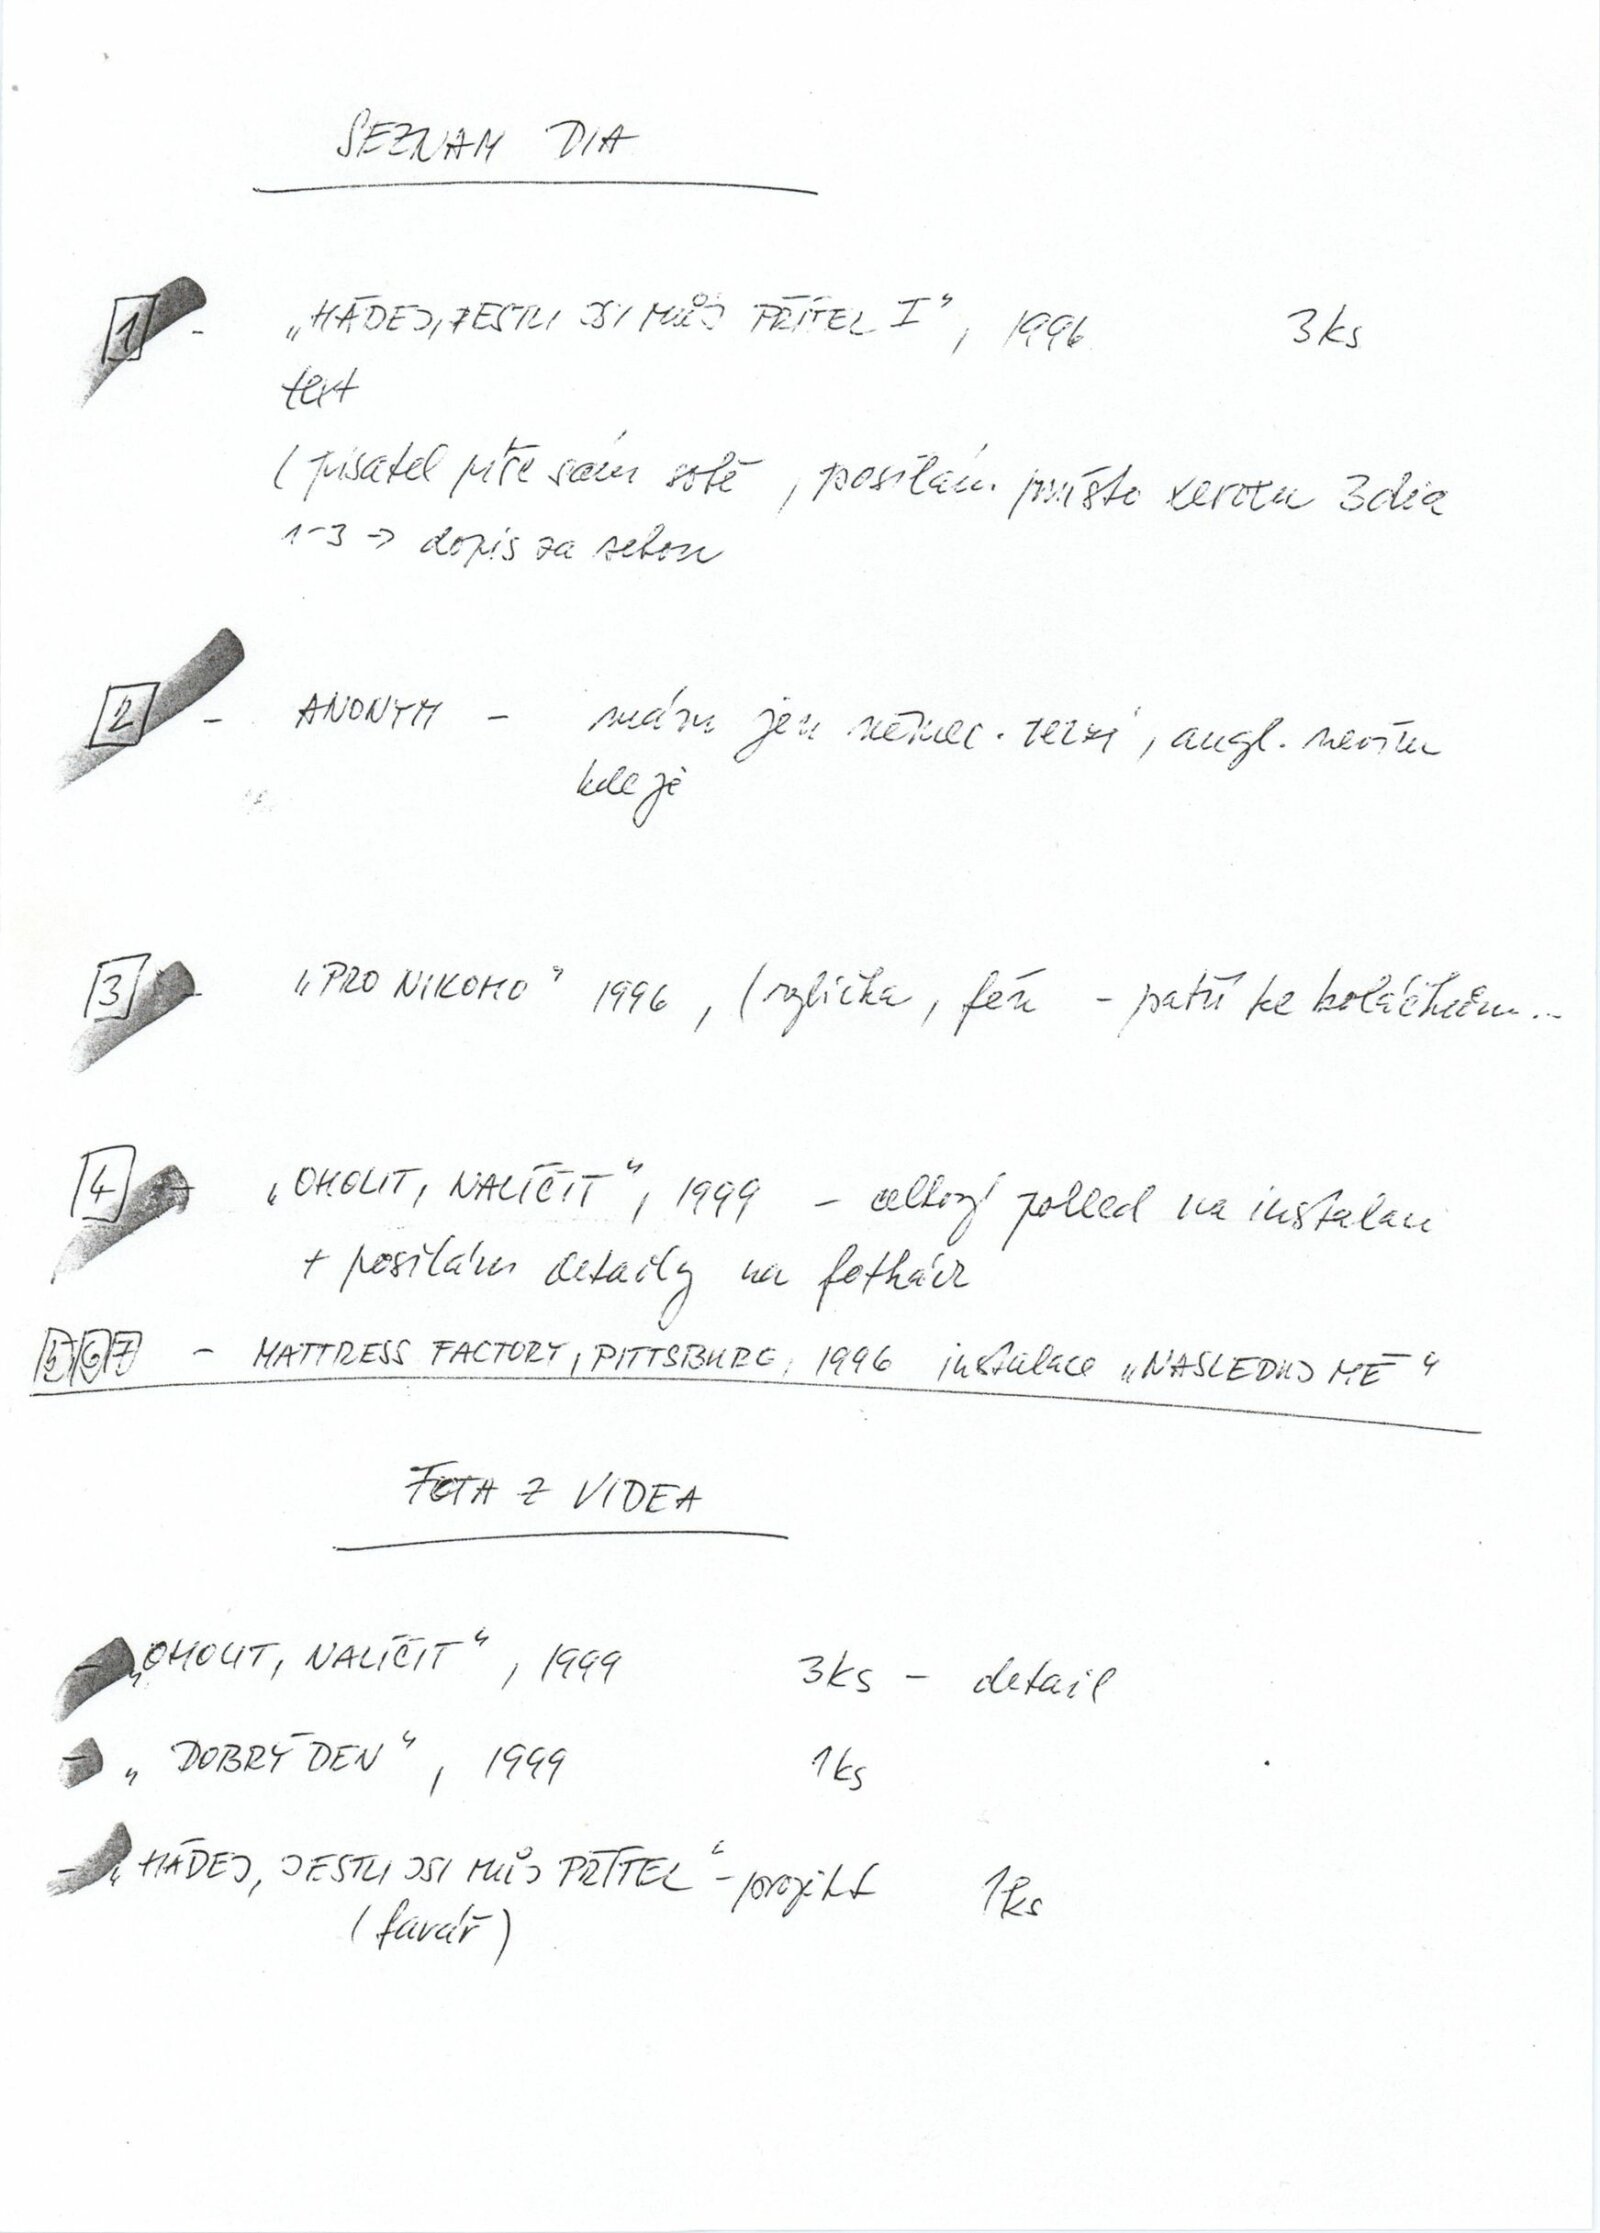 SEZNAM DIA
1 - „HÁDEJ, JESTLI JSI MŮJ PŘÍTEL I“, 1996 3ks
text
(pisatel píše sám sobě, posílám místo xeroxu 3dia
1-3 → dopis za sebou
2 - ANONYM - mám jen němec. verzi, angl. nevím
kde je
3 - „PRO NIKOHO“ 1996, ( , fén - patří ke koláčkům...
4 - „OHOLIT, NALÍČIT“, 1999 - celkový pohled na instalaci
+ posílám detaily na fotkách
5 6 7 - MATTRESS FACTORY, PITTSBURG, 1996 instalace „NASLEDUJ MĚ“
FOTA Z VIDEA
- „OHOLIT, NALÍČIT“, 1999 3ks - detail
- „DOBRÝ DEN“, 1999 1ks
- „HÁDEJ, JESTLI JSI MŮJ PŘÍTEL“ - projekt 1ks
(farář)